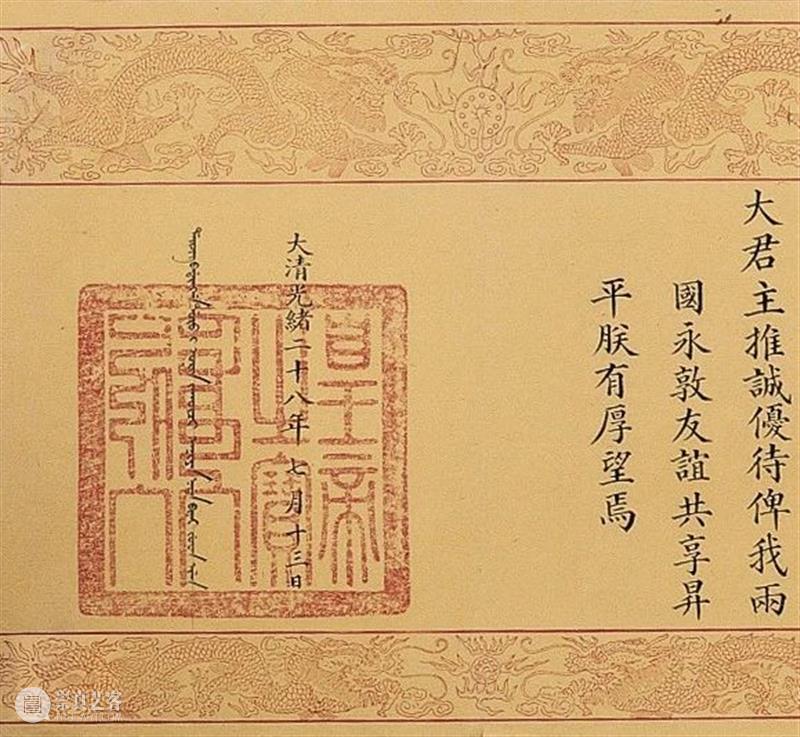 大君主推誠優待俾我兩
國永敦友誼共享昇
平朕有厚望焉
大清光緒二十八年七月十三日
皇帝之寶
崇真艺客